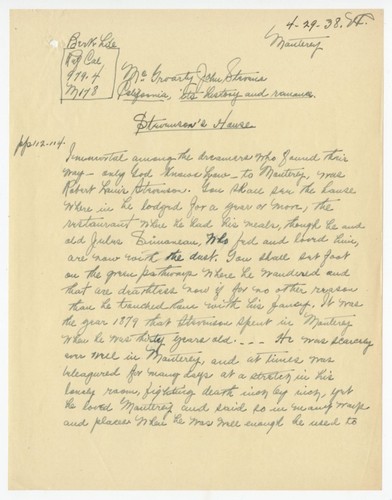 4-29-38. H.
Monterey
Berk Libe
Ref Cal
979.4
M178
Mc Groarty, John Steven
California, its history and romance.
Stevenson's House
pp112-114.
Immortal among the dreamers who found their
way — only God knows how — to Monterey, was
Robert Louis Stevenson. You shall see the house
where in he lodged for a year or more, the
restaurant where he had his meals, though he and
old Jules Simoneau, who fed and loved him,
are now with the dust. You shall set foot
on the green pathways where he wandered and
that are deathless now if for no other reason
than he touched them with his fancy. It was
the year 1879 that Stevenson spent in Monterey
when he was thirty years old. . . . . He was scarcely
ever well in Monterey, and at times was
beleagured for many days at a stretch in his
lonely room, fighting death inch by inch, yet
he loved Monterey and said so in many ways
and places. When he was well enough he used to